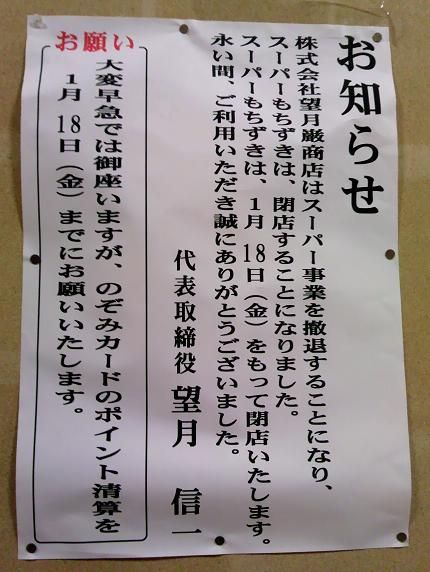 お知らせ
株式会社望月厳商店はスーパー事業を撤退することになり、
スーパーもちずきは、閉店することになりました。
スーパーもちずきは、1月18日（金）をもって閉店いたします。
永い間、ご利用いただき誠にありがとうございました。
代表取締役 望月 信一
お願い
大変早急では御座いますが、のぞみカードのポイント清算を
1月18日（金）までにお願いいたします。